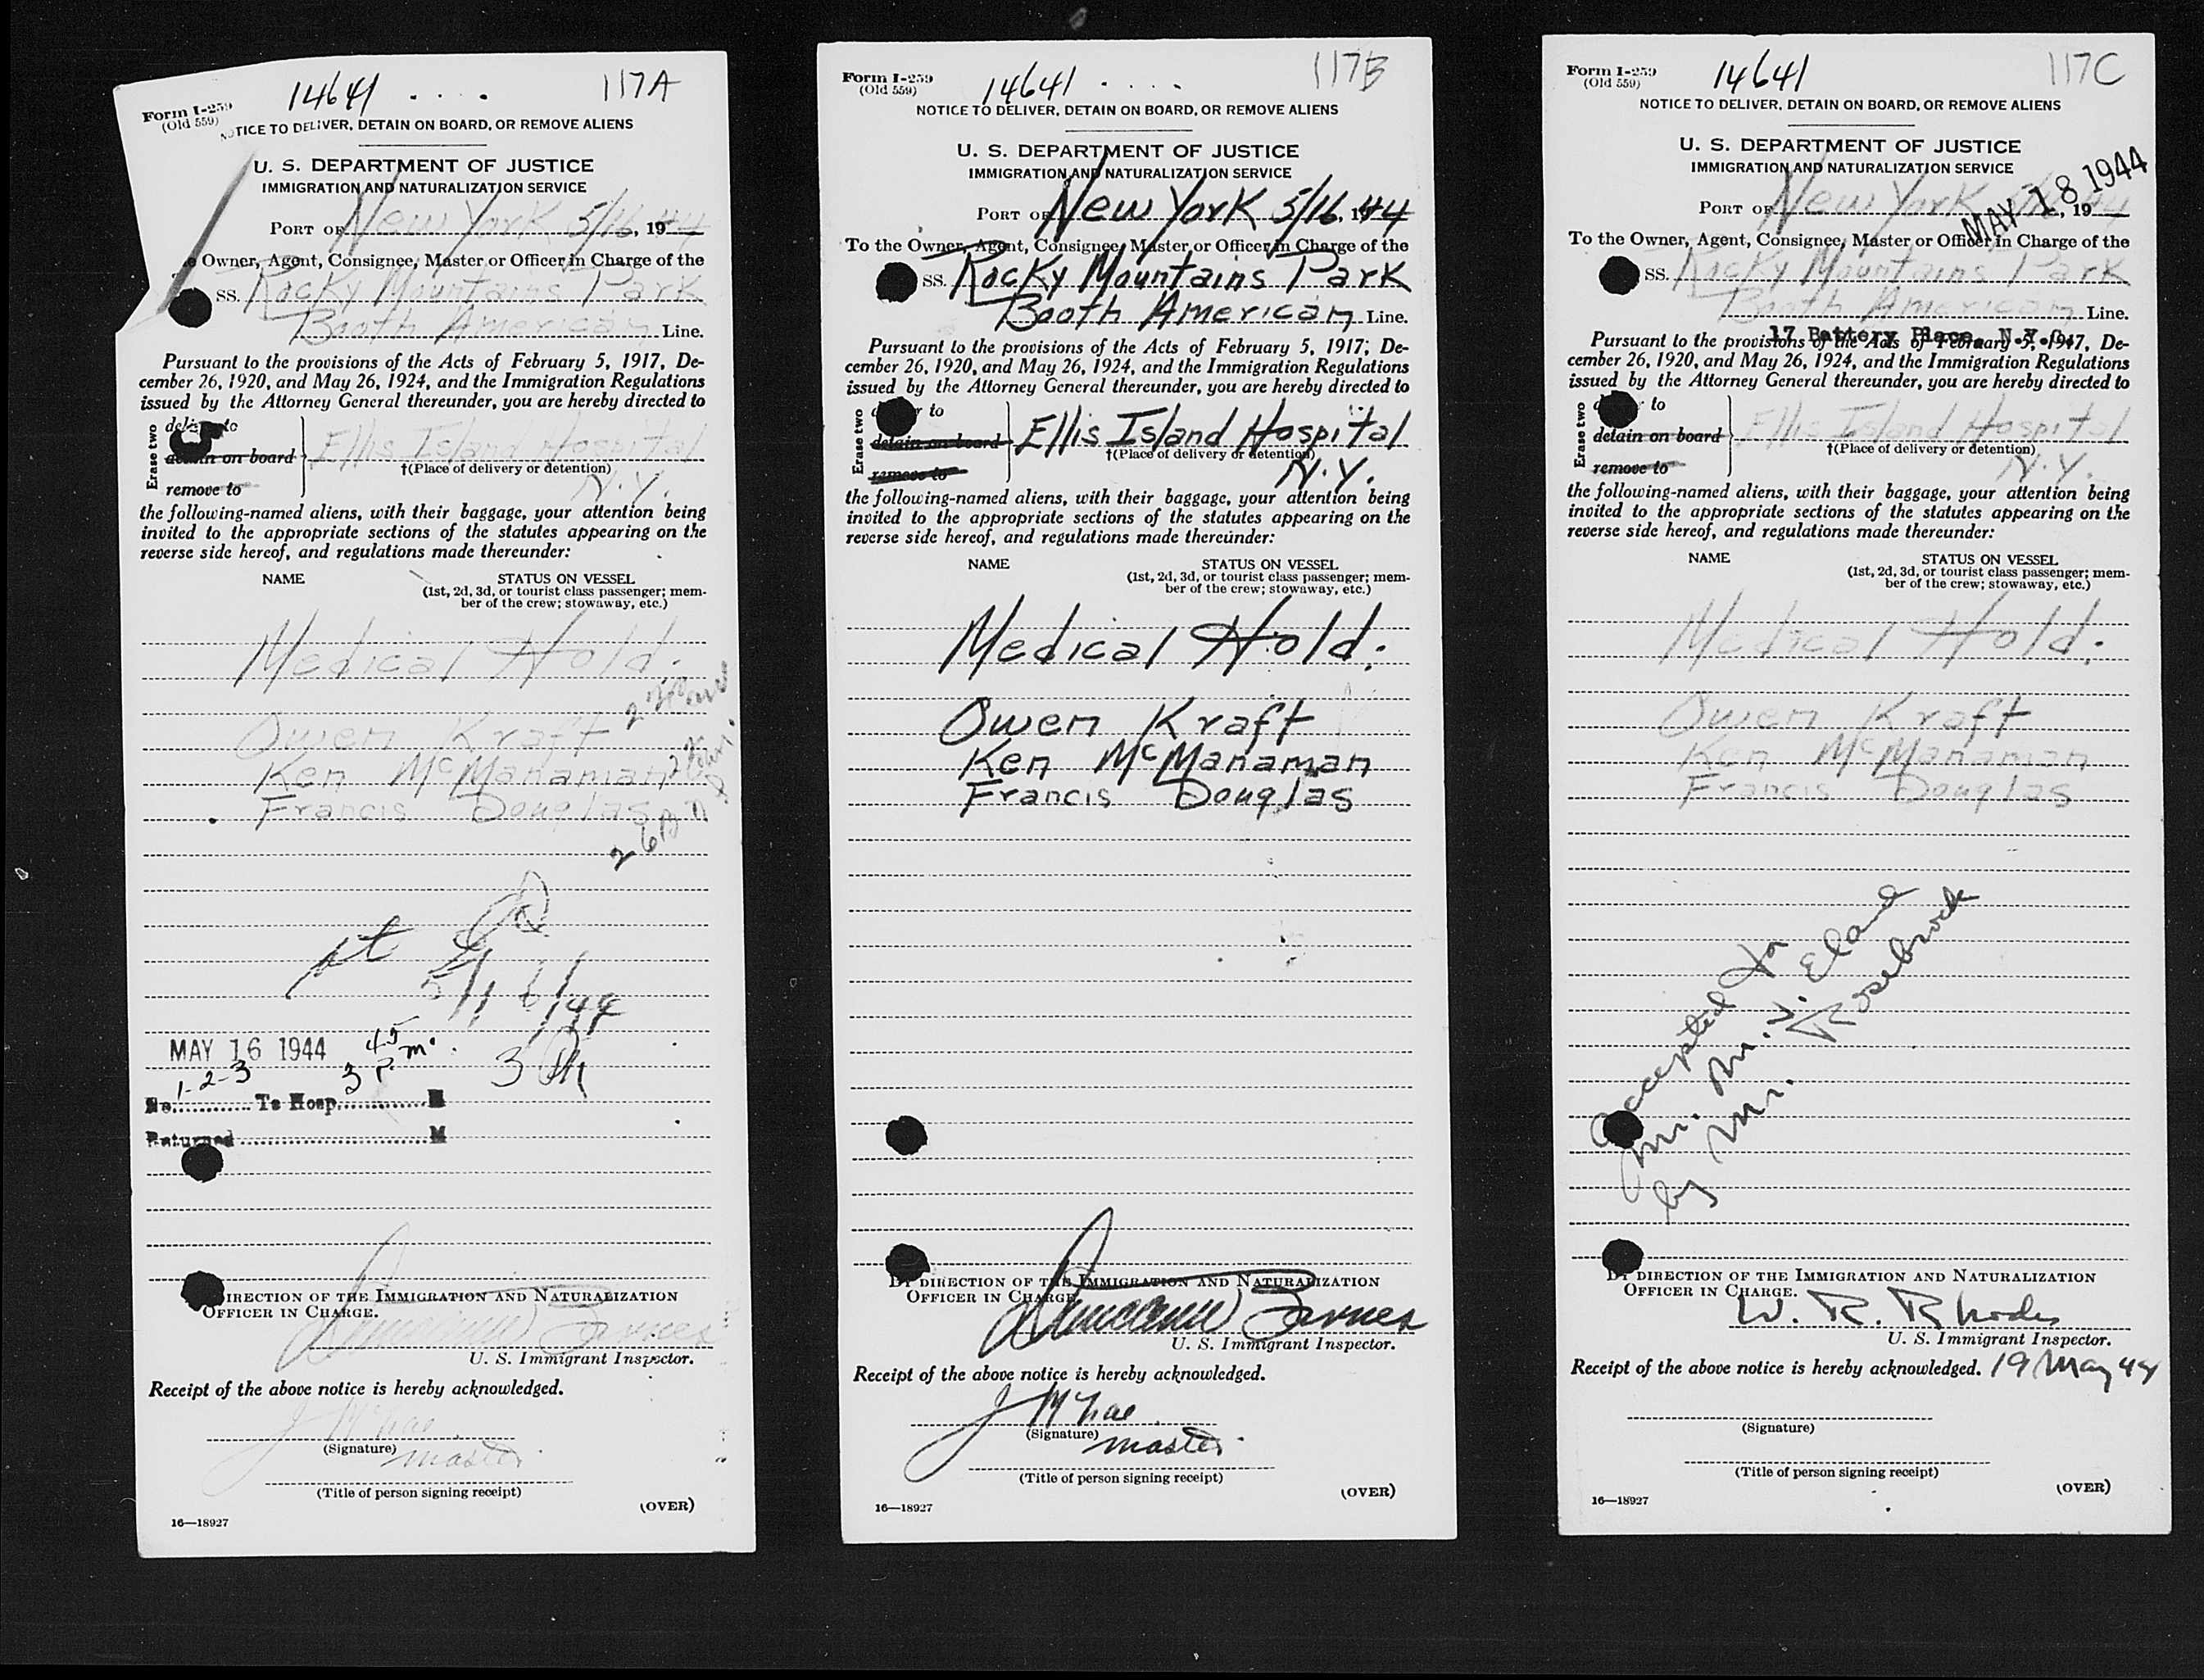 14641 . . . . 117A
Form I-259
(Old 559)
NOTICE TO DELIVER, DETAIN ON BOARD, OR REMOVE ALIENS
U. S. DEPARTMENT OF JUSTICE
IMMIGRATION AND NATURALIZATION SERVICE
PORT OF New York 5/16, 1944
Owner, Agent, Consignee, Master or Officer in Charge of the
SS. Rocky Mountains Park
Booth American Line.
Pursuant to the provisions of the Acts of February 5, 1917, De-
cember 26, 1920, and May 26, 1924, and the Immigration Regulations
issued by the Attorney General thereunder, you are hereby directed to
Erase two
deliver to
detain on board
remove to
Ellis Island Hospital
†(Place of delivery or detention)
N.Y.
the following-named aliens, with their baggage, your attention being
invited to the appropriate sections of the statutes appearing on the
reverse side hereof, and regulations made thereunder:
NAME STATUS ON VESSEL
(1st, 2d, 3d, or tourist class passenger; mem-
ber of the crew; stowaway, etc.)
Medical Hold:
Owen Kraft
Ken McManaman
Francis Douglas
5/16/44
MAY 16 1944 3 45 P.m.
No. 1-2-3 To Hosp. M
Returned M
DIRECTION OF THE IMMIGRATION AND NATURALIZATION
OFFICER IN CHARGE.
Barnes
U. S. Immigrant Inspector.
Receipt of the above notice is hereby acknowledged.
J McRae
(Signature) master
(Title of person signing receipt)
(OVER)
16—18927
14641 . . . . 117B
Form I-259
(Old 559)
NOTICE TO DELIVER, DETAIN ON BOARD, OR REMOVE ALIENS
U. S. DEPARTMENT OF JUSTICE
IMMIGRATION AND NATURALIZATION SERVICE
PORT OF New York 5/16, 1944
To the Owner, Agent, Consignee, Master or Officer in Charge of the
SS. Rocky Mountains Park
Booth American Line.
Pursuant to the provisions of the Acts of February 5, 1917, De-
cember 26, 1920, and May 26, 1924, and the Immigration Regulations
issued by the Attorney General thereunder, you are hereby directed to
Erase two
to
detain on board
remove to
Ellis Island Hospital
†(Place of delivery or detention)
N.Y.
the following-named aliens, with their baggage, your attention being
invited to the appropriate sections of the statutes appearing on the
reverse side hereof, and regulations made thereunder:
NAME STATUS ON VESSEL
(1st, 2d, 3d, or tourist class passenger; mem-
ber of the crew; stowaway, etc.)
Medical Hold:
Owen Kraft
Ken McManaman
Francis Douglas
BY DIRECTION OF THE IMMIGRATION AND NATURALIZATION
OFFICER IN CHARGE.
Barnes
U. S. Immigrant Inspector.
Receipt of the above notice is hereby acknowledged.
J McRae
(Signature) master
(Title of person signing receipt)
(OVER)
16—18927
14641 117C
Form I-259
(Old 559)
NOTICE TO DELIVER, DETAIN ON BOARD, OR REMOVE ALIENS
U. S. DEPARTMENT OF JUSTICE
IMMIGRATION AND NATURALIZATION SERVICE
MAY 18 1944
PORT OF New York 5/16, 1944
To the Owner, Agent, Consignee, Master or Officer in Charge of the
SS. Rocky Mountains Park
Booth American Line.
17 Battery Place, N.Y.C.
Pursuant to the provisions of the Acts of February 5, 1917, De-
cember 26, 1920, and May 26, 1924, and the Immigration Regulations
issued by the Attorney General thereunder, you are hereby directed to
Erase two
to
detain on board
remove to
Ellis Island Hospital
†(Place of delivery or detention)
N.Y.
the following-named aliens, with their baggage, your attention being
invited to the appropriate sections of the statutes appearing on the
reverse side hereof, and regulations made thereunder:
NAME STATUS ON VESSEL
(1st, 2d, 3d, or tourist class passenger; mem-
ber of the crew; stowaway, etc.)
Medical Hold:
Owen Kraft
Ken McManaman
Francis Douglas
Accepted for
Mr. M. V. Eland
by Mr. Rosebrock
BY DIRECTION OF THE IMMIGRATION AND NATURALIZATION
OFFICER IN CHARGE.
W. R. Rhodes
U. S. Immigrant Inspector.
Receipt of the above notice is hereby acknowledged. 19 May 44
(Signature)
(Title of person signing receipt)
(OVER)
16—18927